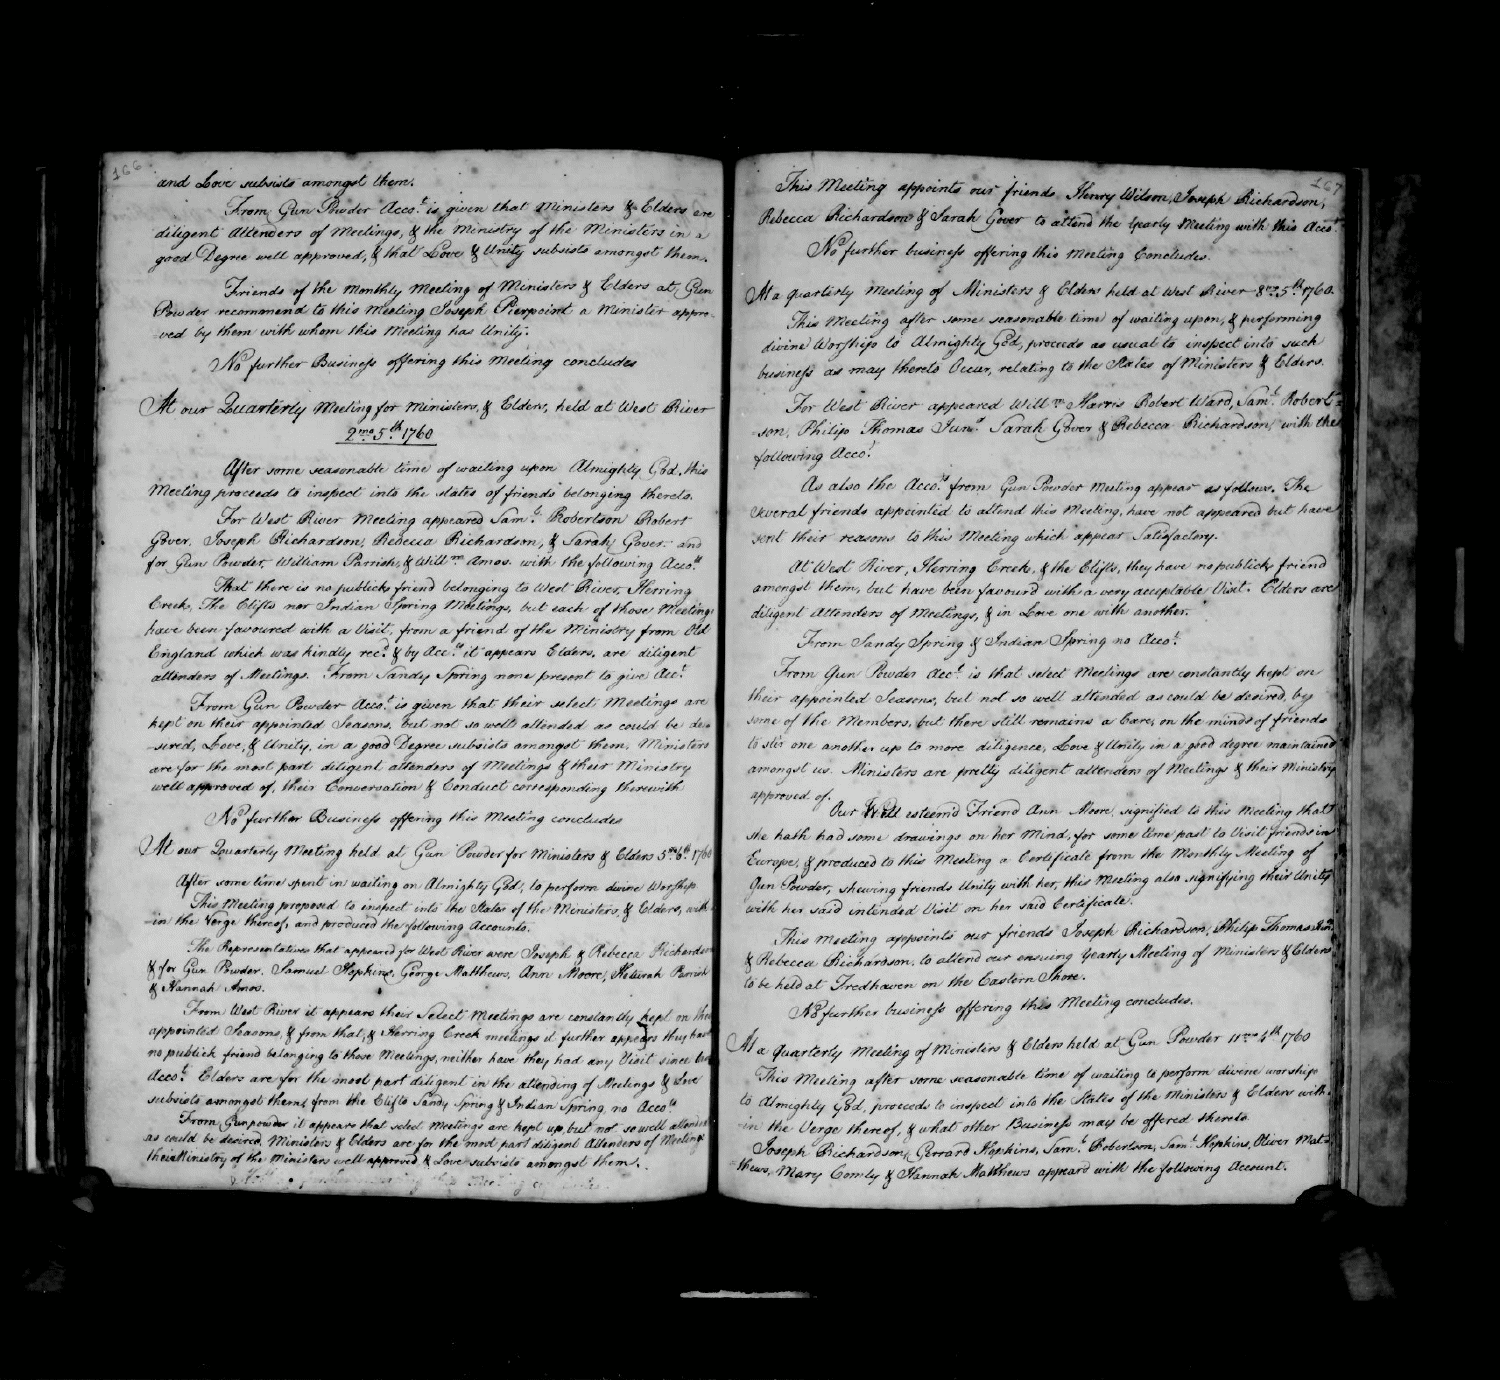 166
and Love subsists amongst them.
From Gun Powder Acco.t is given that Ministers & Elders are
diligent Attenders of Meetings, & the Ministry of the Ministers in a
good Degree well approved, & that Love & Unity subsists amongst them.
Friends of the Monthly Meeting of Ministers & Elders at Gun
Powder recommend to this Meeting Joseph Pierpoint a Minister appro-
-ved by them with whom this Meeting has Unity.
No further Business offering this Meeting concludes
At our Quarterly Meeting for Ministers, & Elders, held at West River
2mo 5th 1760
After some seasonable time of waiting upon Almighty God, this
Meeting proceeds to inspect into the states of friends belonging thereto.
For West River Meeting appeared Sam.l Robertson Robert
Gover, Joseph Richardson, Rebecca Richardson, & Sarah Gover: and
for Gun Powder, William Parrish, & Will.m Amos. with the following Acco.ts
That there is no publick friend belonging to West River, Herring
Creek, The Clifts nor Indian Spring Meetings, but each of those Meetings
have been favoured with a Visit, from a friend of the Ministry from Old
England which was kindly rec.d & by Acc.ts it appears Elders, are diligent
attenders of Meetings. From Sandy Spring none present to give Acc.t
From Gun Powder Acco.t is given that their select Meetings are
kept on their appointed Seasons, but not so well attended as could be de-
-sired, Love, & Unity, in a good Degree subsists amongst them, Ministers
are for the most part diligent attenders of Meetings & their Ministry
well approved of, their Conversation & Conduct corresponding therewith
No further Business offering this Meeting concludes
At our Quarterly Meeting held at Gun Powder for Ministers & Elders 5mo 6th 1760
After some time spent in waiting on Almighty God, to perform divine Worship
This Meeting proposed to inspect into the States of the Ministers, & Elders, with-
-in the Verge thereof, and produced the following Accounts.
The Representatives that appeared for West River were Joseph & Rebecca Richardson
& for Gun Powder, Samuel Hopkins, George Matthews, Ann Moore, Keturah Parrish
& Hannah Amos.
From West River it appears their Select Meetings are constantly kept on their
appointed Seasons, & from that, & Herring Creek meetings it further appears they have
no publick friend belonging to those Meetings, neither have they had any Visit since
Acco.t Elders are for the most part diligent in the attending of Meetings & Love
subsists amongst them, from the Clifts Sandy Spring & Indian Spring, no Acco.ts
From Gunpowder it appears that select Meetings are kept up, but not so well attended
as could be desired, Ministers & Elders are for the most part diligent Attenders of Meetings
their Ministry of the Ministers well approved & Love subsists amongst them.
167
This Meeting appoints our friends Henry Wilson, Joseph Richardson,
Rebecca Richardson & Sarah Gover to attend the Yearly Meeting with this Acco.t
No further business offering this Meeting Concludes.
At a quarterly Meeting of Ministers & Elders held at West River 8mo 5th 1760.
This Meeting after some seasonable time of waiting upon, & performing
divine Worship to Almighty God, proceeds as usual to inspect into such
business as may thereto Occur, relating to the States of Ministers & Elders.
For West River appeared Will.m Harris Robert Ward, Sam.l Robert-
-son, Philip Thomas Jun.r Sarah Gover & Rebecca Richardson, with the
following Acco.t
As also the Acco.ts from Gun Powder Meeting appear as follows. The
several friends appointed to attend this Meeting, have not appeared but have
sent their reasons to this Meeting which appear Satisfactory.
At West River, Herring Creek, & the Clifts, they have no publick friend
amongst them, but have been favour'd with a very acceptable Visit. Elders are
diligent Attenders of Meetings, & in Love one with another.
From Sandy Spring & Indian Spring no Acco.t
From Gun Powder Acc.t is that select Meetings are constantly kept on
their appointed Seasons, but not so well attended as could be desired, by
some of the Members, but there still remains a Care, on the minds of friends
to stir one another up to more diligence, Love & Unity in a good degree maintained
amongst us. Ministers are pretty diligent attenders of Meetings & their Ministry
approved of.
Our Well esteem'd Friend Ann Moore, signified to this Meeting that
she hath had some drawings on her Mind, for some time past to Visit friends in
Europe, & produced to this Meeting a Certificate from the Monthly Meeting of
Gun Powder, shewing friends Unity with her, this Meeting also signifying their Unity
with her said intended Visit on her said Certificate.
This Meeting appoints our friends Joseph Richardson, Philip Thomas Jun.r
& Rebecca Richardson, to attend our ensuing Yearly Meeting of Ministers & Elders
to be held at Tredhaven on the Eastern Shore.
No further business offering this Meeting concludes.
At a quarterly Meeting of Ministers & Elders held at Gun Powder 11mo 4th 1760
This Meeting after some seasonable time of waiting to perform divine worship
to Almighty God, proceeds to inspect into the States of the Ministers & Elders with-
-in the Verge thereof, & what other Business may be offered thereto
Joseph Richardson, Gerrard Hopkins, Sam.l Robertson, Sam.l Hopkins, Oliver Mat-
-thews, Mary Comly & Hannah Matthews appeard with the following Account.